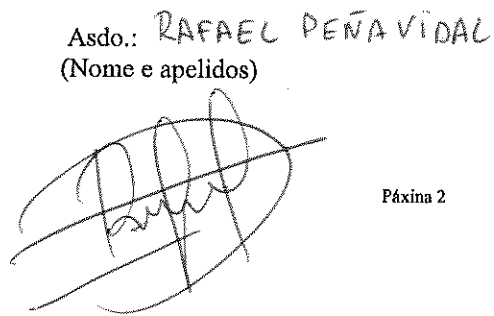 Asdo.: RAFAEL PEÑA VIDAL
(Nome e apelidos)
Rafael
Páxina 2